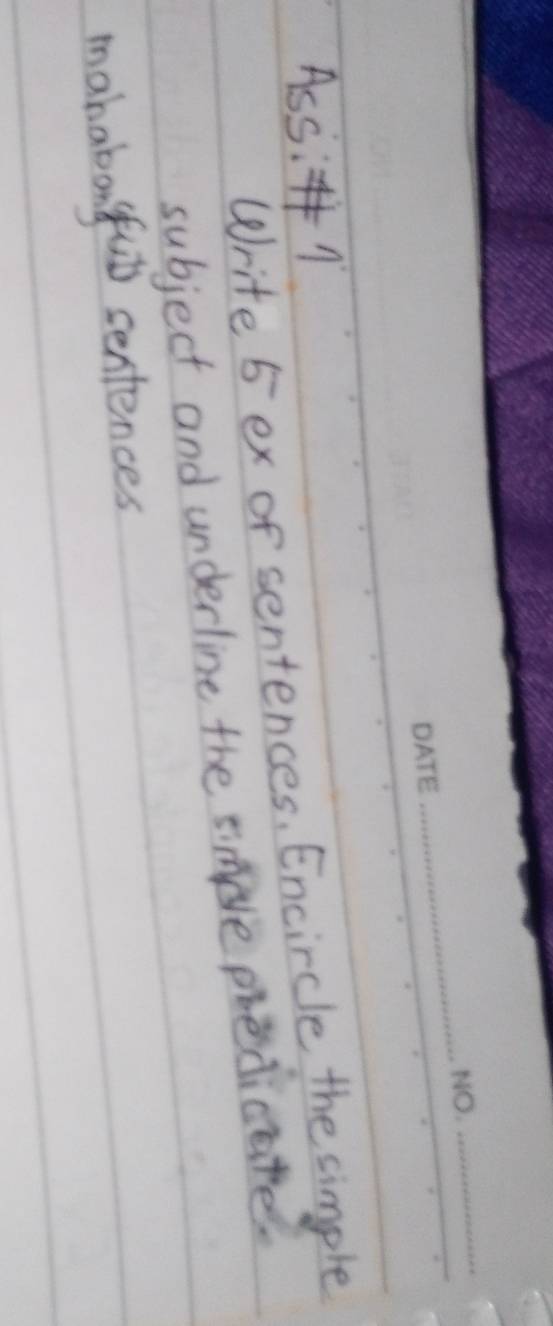 DATE NO.
Ass:# 1
Write 5 ex of sentences. Encircle the simple
subject and underline the simple predicate.
mahabang sentences